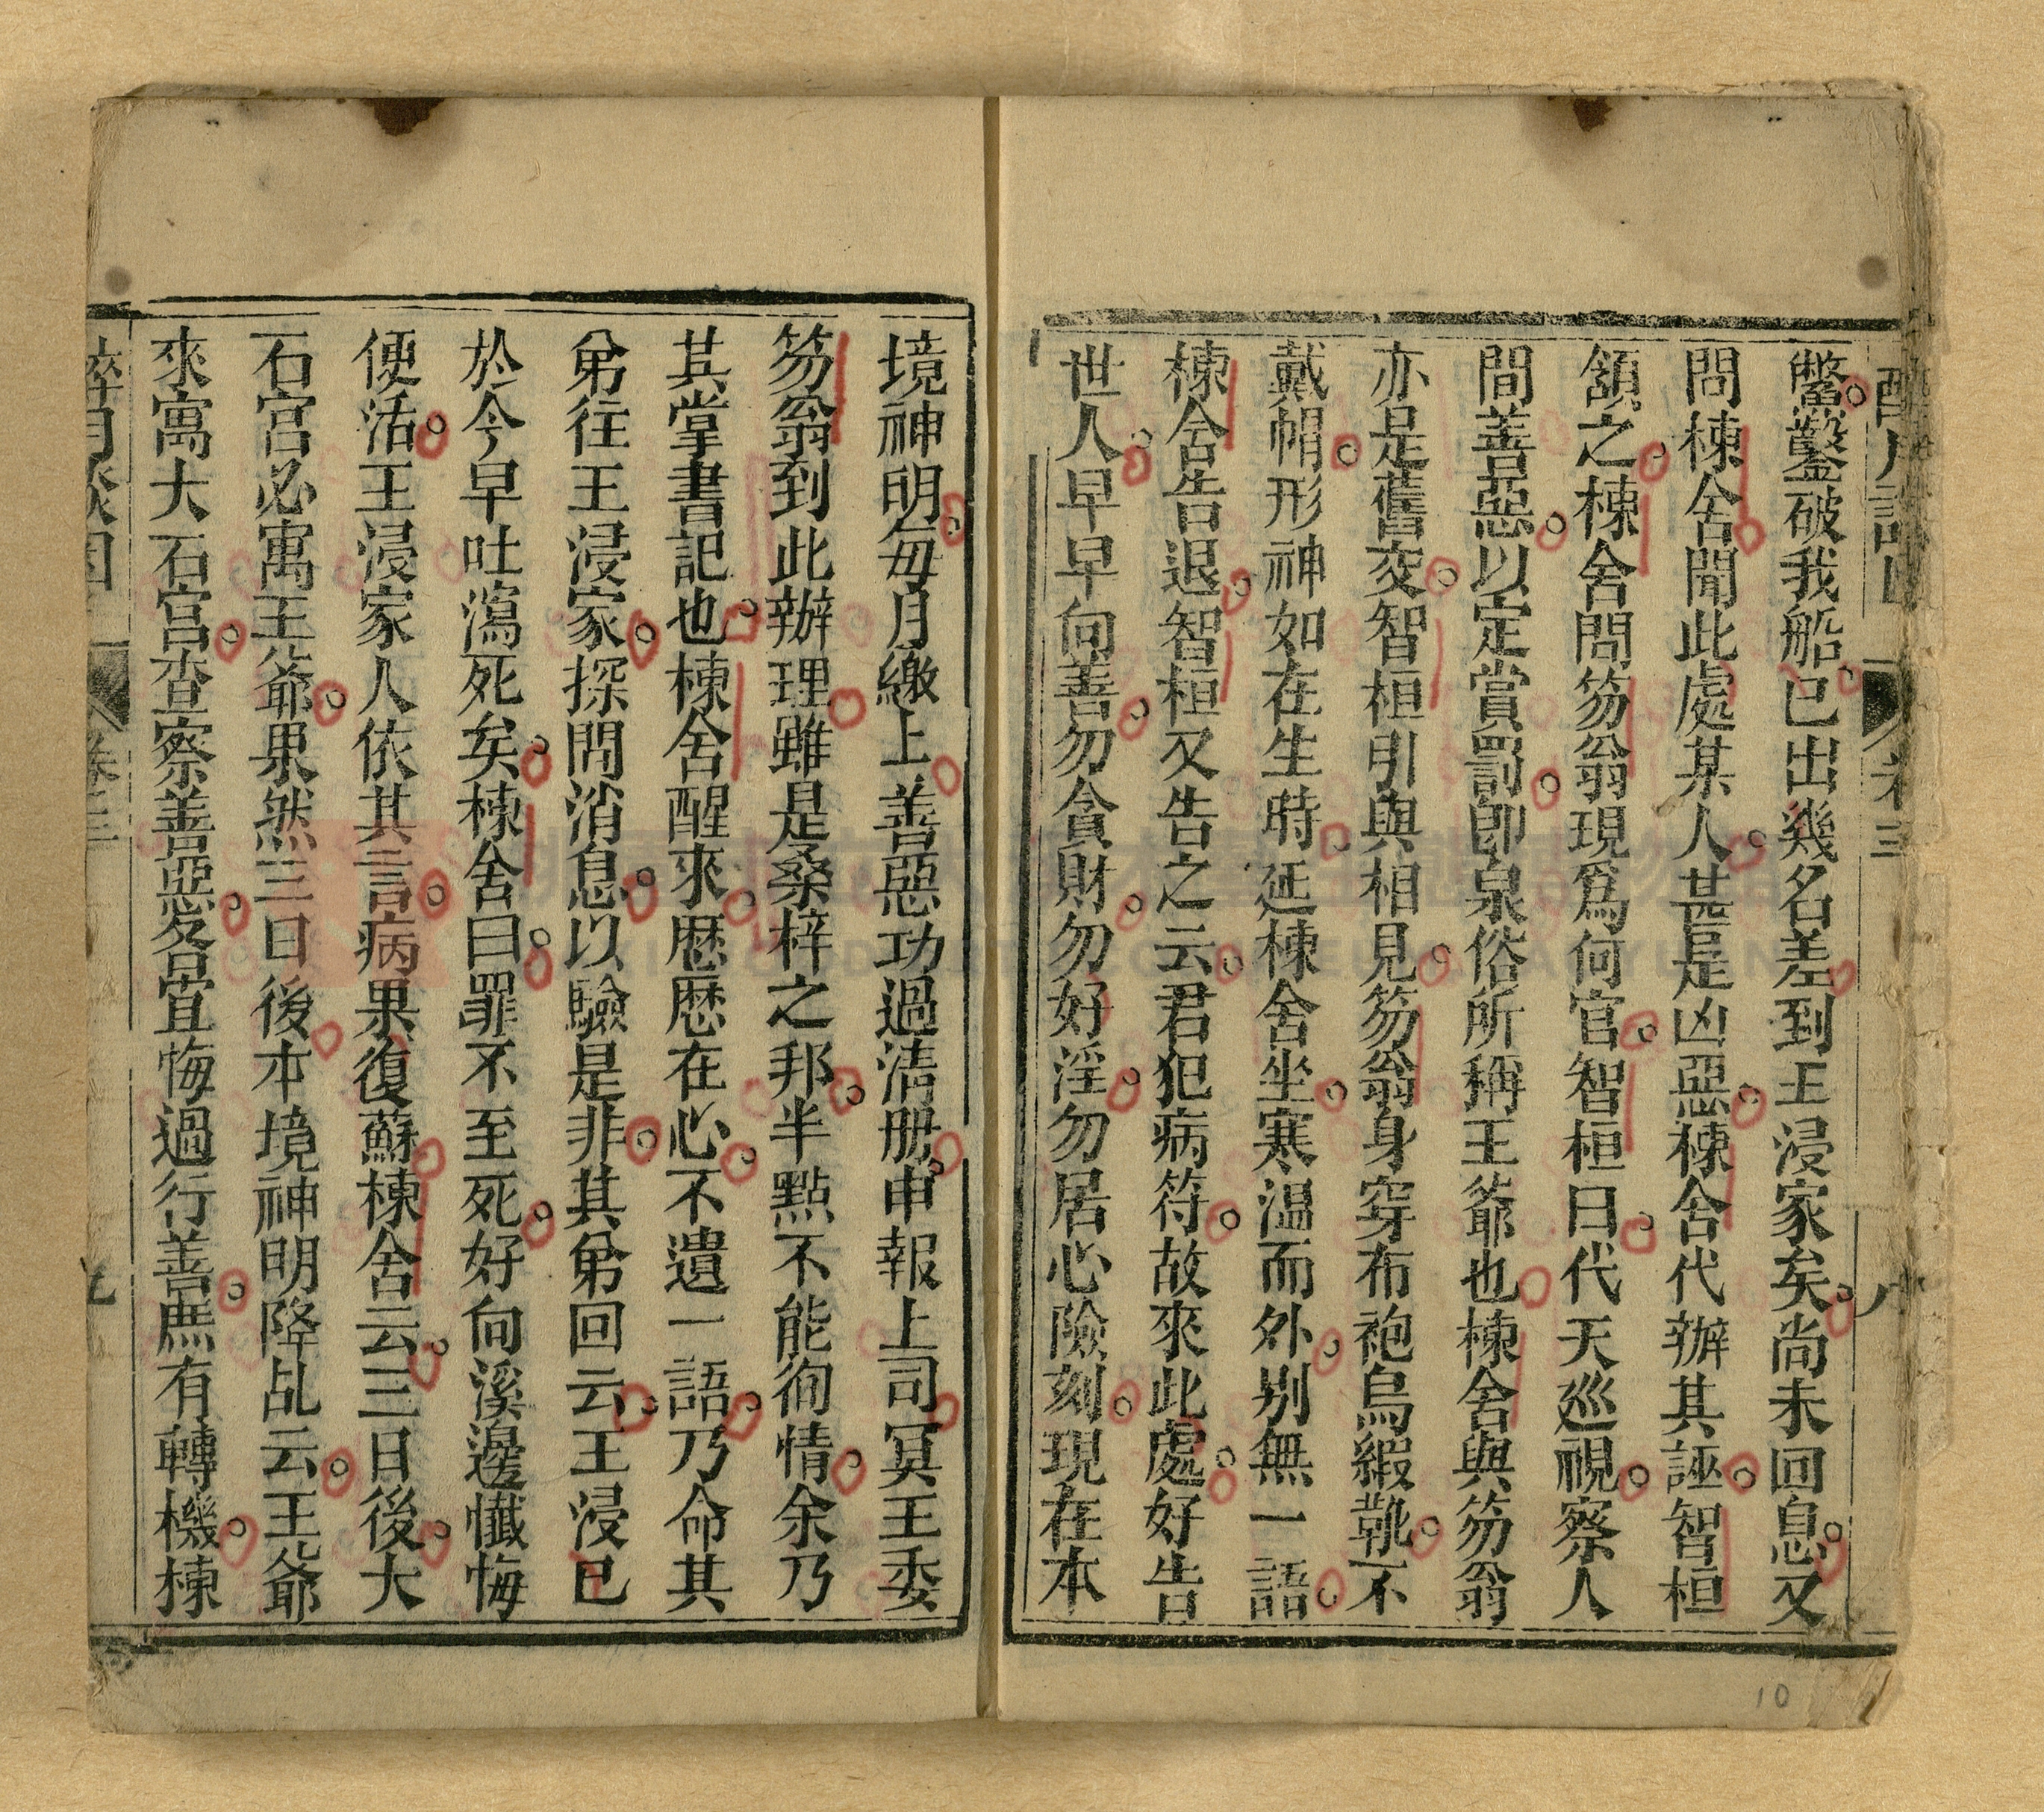 鑿破我船已出幾名差到王浸家矣尚未回息又
問棟舍聞此處某人甚是凶惡棟舍代辦其誣智桓
頷之棟舍問笏翁現爲何官智桓曰代天巡視察人
間善惡以定賞罰卽泉俗所稱王爺也棟舍與笏翁
亦是舊交智桓引與相見笏翁身穿布袍烏緞靴不
戴帽形神如在生時延棟舍坐寒温而外别無一語
棟舍告退智桓又告之云君犯病符故來此處好告
世人早早向善勿貪財勿好淫勿居心險刻現在本
境神明每月繳上善惡功過清册申報上司冥王委
笏翁到此辦理雖是桑梓之邦半點不能徇情余乃
其掌書記也棟舍醒來歷歷在心不遺一語乃命其
弟往王浸家探問消息以驗是非其弟回云王浸已
於今早吐瀉死矣棟舍曰罪不至死好向溪邊懺悔
便活王浸家人依其言病果復蘇棟舍云三日後大
石宫必寓王爺果然三日後本境神明降乩云王爺
來寓大石宫查察善惡各宜悔過行善庶有轉機棟
卷三